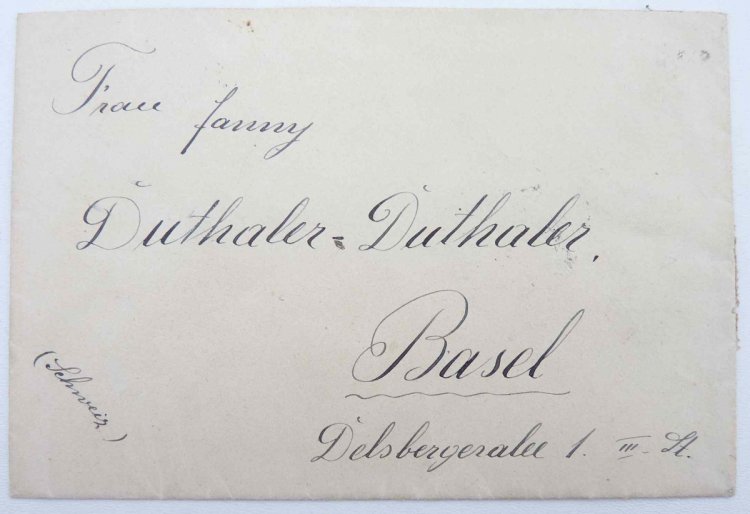 Frau Fanny
Duthaler=Duthaler,
Basel
(Schweiz)
Delsbergeralee 1. III. St.